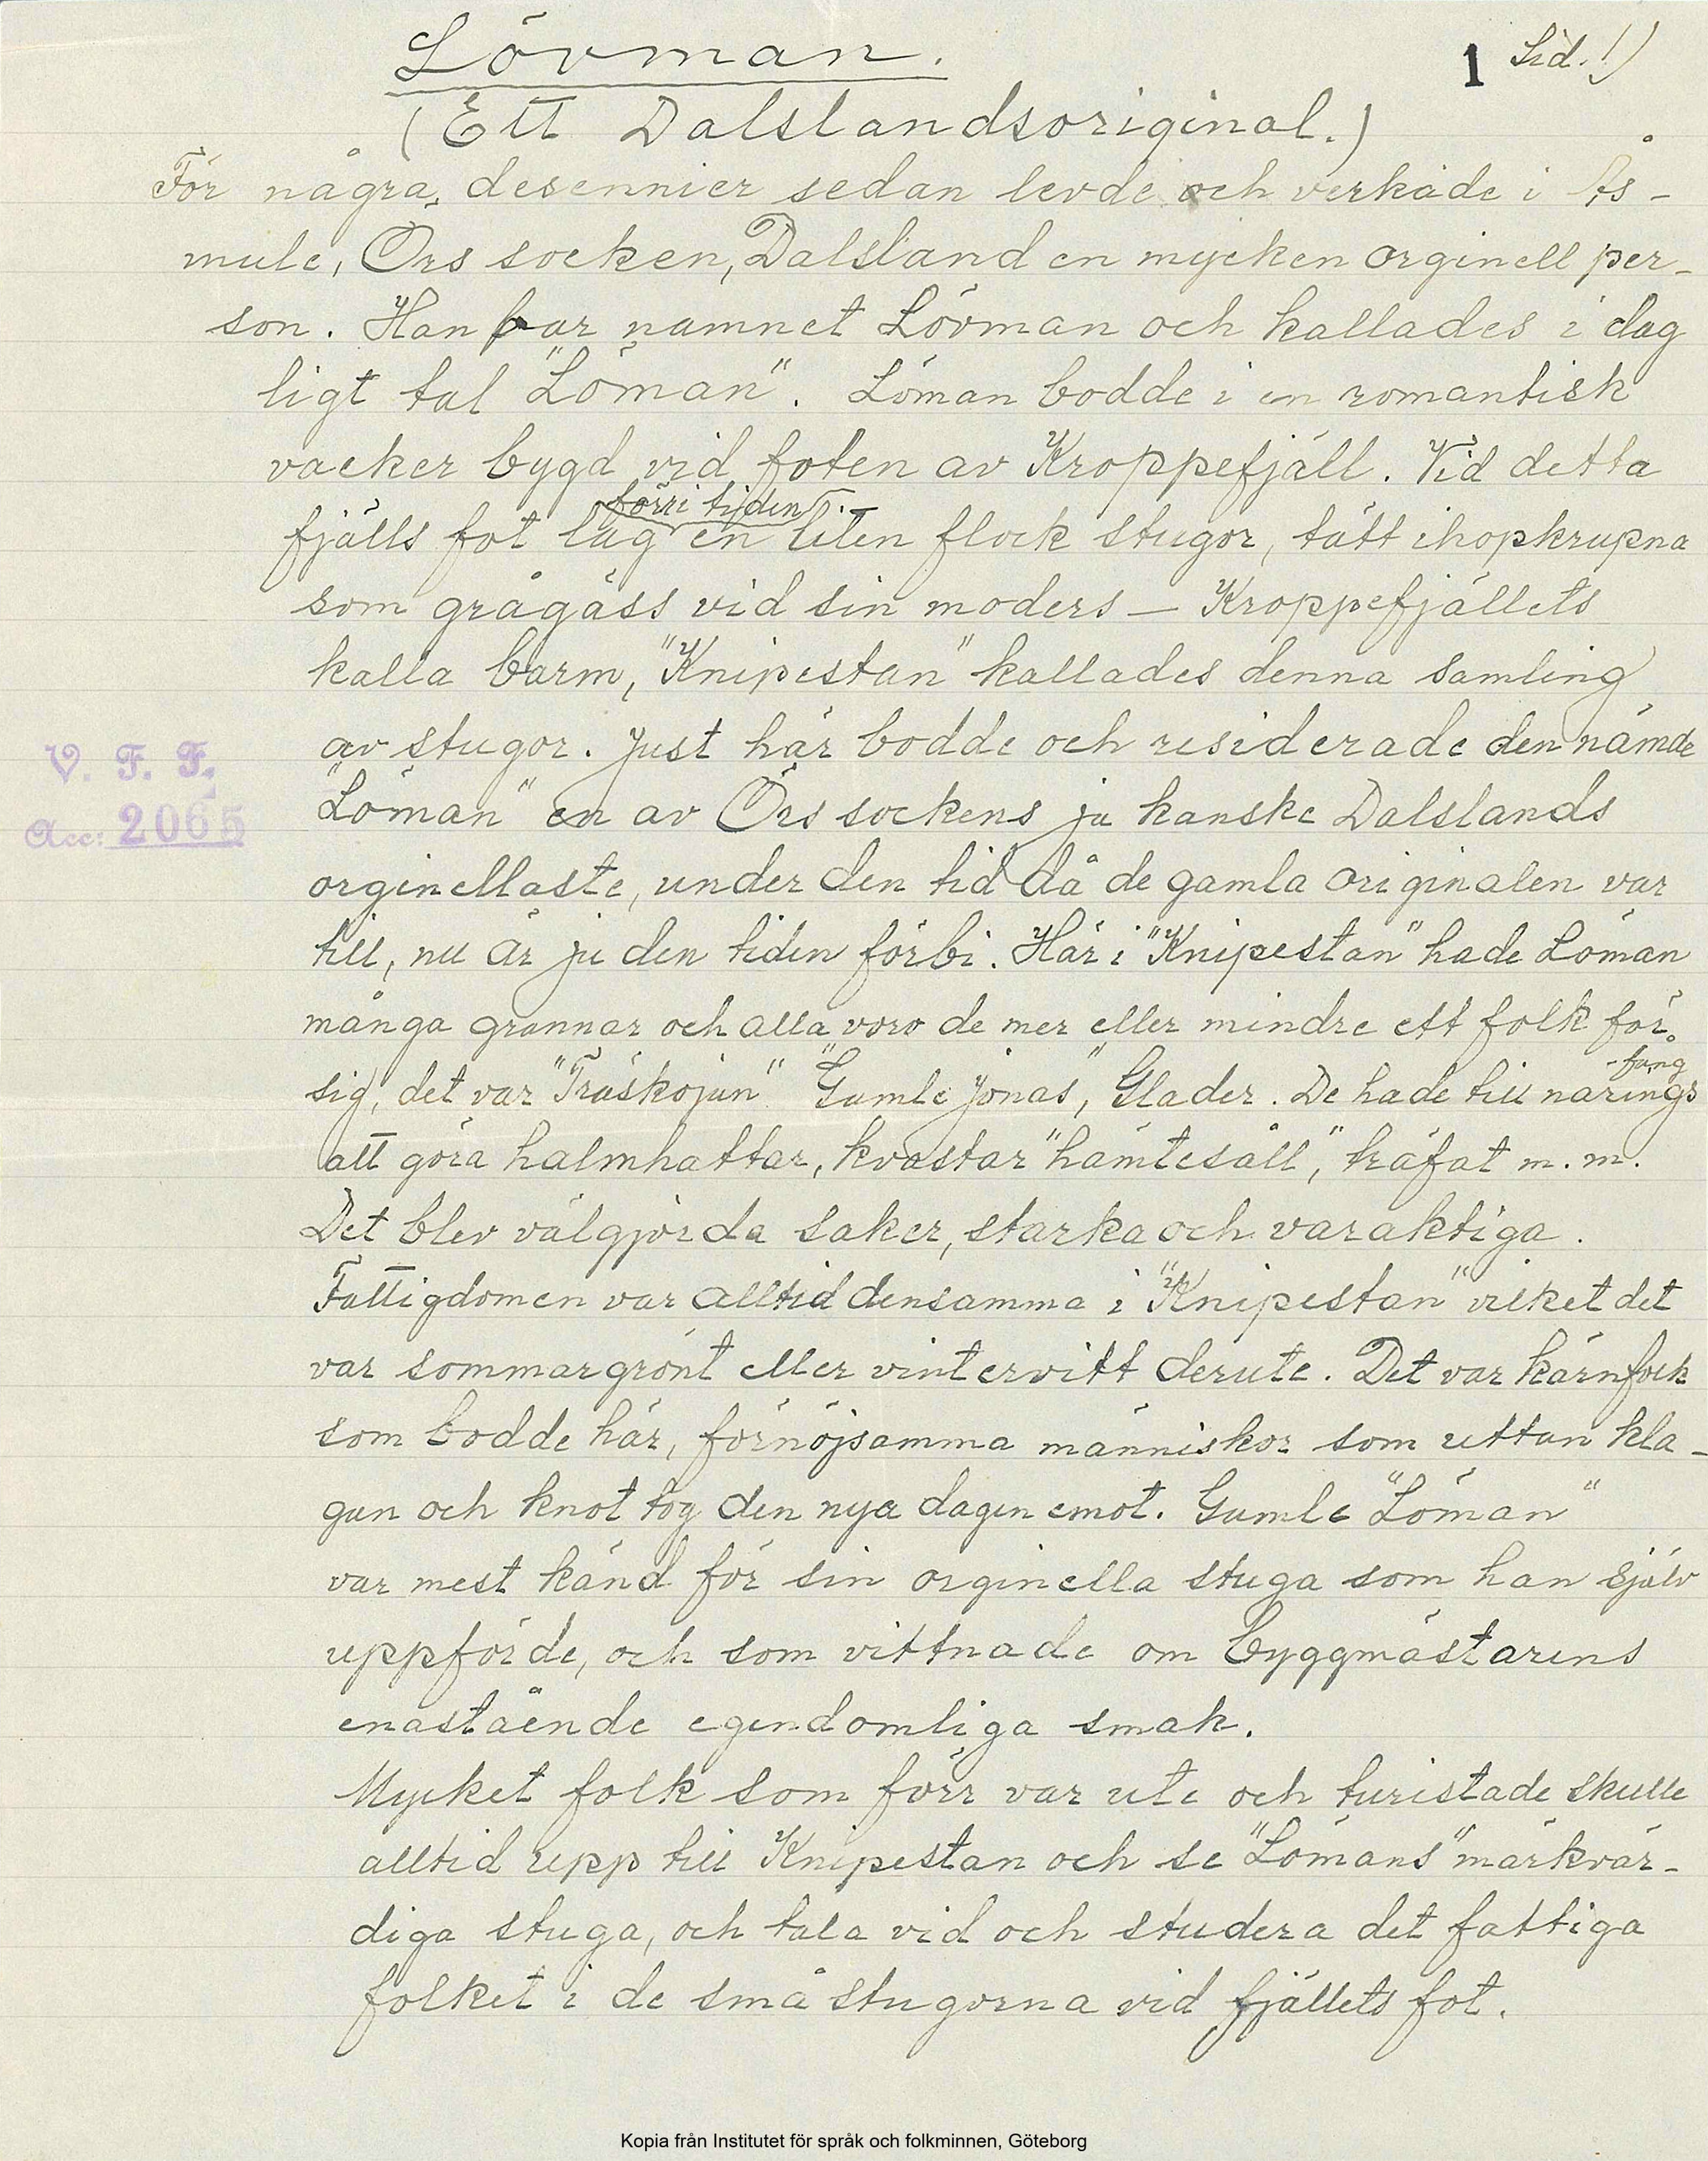 Lövman.
1 Sid. 1)
(Ett Dalslandsoriginal.)
För några desennier sedan levde och verkade i Ås-
mule, Örs socken, Dalsland en mycken orginell per-
son. Han bar namnet Lövman och kallades i dag
ligt tal "Löman". Löman bodde i en romantisk
vacker bygd vid foten av Kroppefjäll. Vid detta
förr i tiden
fjälls fot låg en liten flock stugor, tätt ihopkrupna
som grågäss vid sin moders — Kroppefjällets
kalla barm, "Knipestan" kallades denna samling
av stugor. Just här bodde och residerade den nämde
"Löman" en av Örs sockens ja kanske Dalslands
orginellaste, under den tid då de gamla originalen var
till, nu är ju den tiden förbi. Här i "Knipestan" hade Löman
många grannar och alla voro de mer eller mindre ett folk för
-fång
sig, det var "Träskojan" "Gamle Jonas", Glader. De hade till närings
att göra halmhattar, kvastar "hämtesåll", träfat m. m.
Det blev välgjorda saker, starka och varaktiga.
Fattigdomen var alltid densamma i "Knipestan" vilket det
var sommargrönt eller vintervitt derute. Det var kärnfolk
som bodde här, förnöjsamma människor som uttan kla-
gan och knot tog den nya dagen emot. Gamle "Löman"
var mest känd för sin orginella stuga som han själv
uppförde, och som vittnade om byggmästarens
enastående egendomliga smak.
Mycket folk som förr var ute och turistade skulle
alltid upp till Knipestan och se "Lömans" märkvär-
diga stuga, och tala vid och studera det fattiga
folket i de små stugorna vid fjällets fot.
V. F. F.
Acc: 2065
Kopia från Institutet för språk och folkminnen, Göteborg